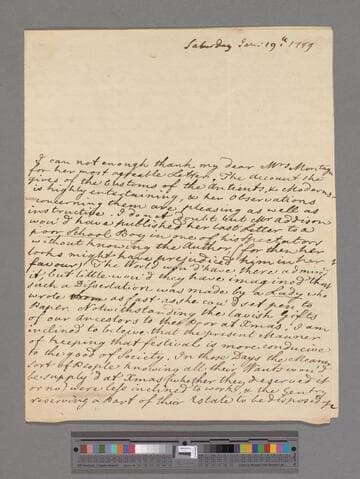 Saturday Jan: 19th 1759
I can not enough thank my dear Mrs. Montagu
for her most agreable Letter. The account she
gives of the Customs of the Antients, & Moderns
is highly entertaining, & her observations
concerning them are pleasing as well as
instructive. I do not doubt but Mr. Addison
wou'd have published her last Letter to a
poor School Boy in one of his Spectators,
without knowing the Author, (for then her
looks might have prejudiced him in her
favour) & the World wou'd have there admir'd
it, but little wou'd they have imagined that
such a Dissertation was made by a Lady, who
wrote as fast as she cou'd set pen to
Paper. Notwithstanding the lavish Gifts
of our Ancestors to the Poor at Xmas, I am
inclined to beleive that the present Manner
of keeping that festival is more conducive
to the good of Society. In those Days the Meaner
Sort of People knowing all their Wants wou'd
be supply'd at Xmas (whether they deserved it
or no) were less inclined to work, & the Gentry
reserving a Part of their Estate to be disposed